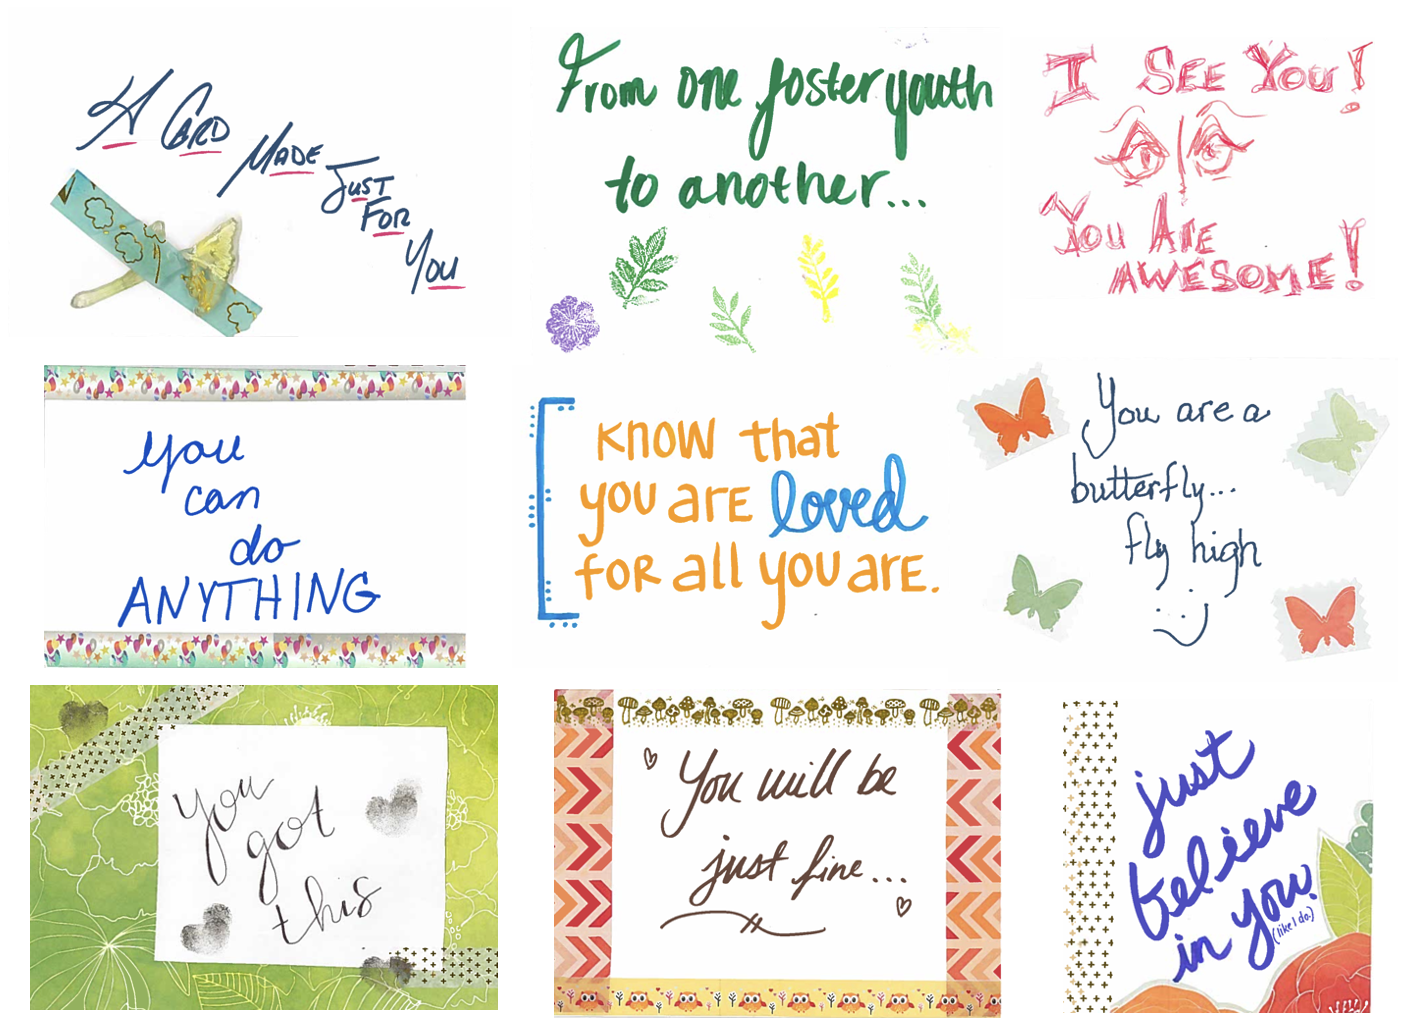 A CARD
MADE
JUST
FOR
YOU
From one foster youth
to another...
I SEE YOU!
YOU ARE
AWESOME!
you
can
do
ANYTHING
KNOW that
you are loved
for all you are.
You are a
butterfly...
fly high
:)
You
got
this
You will be
just fine...
just
believe
in you!
(like I do.)